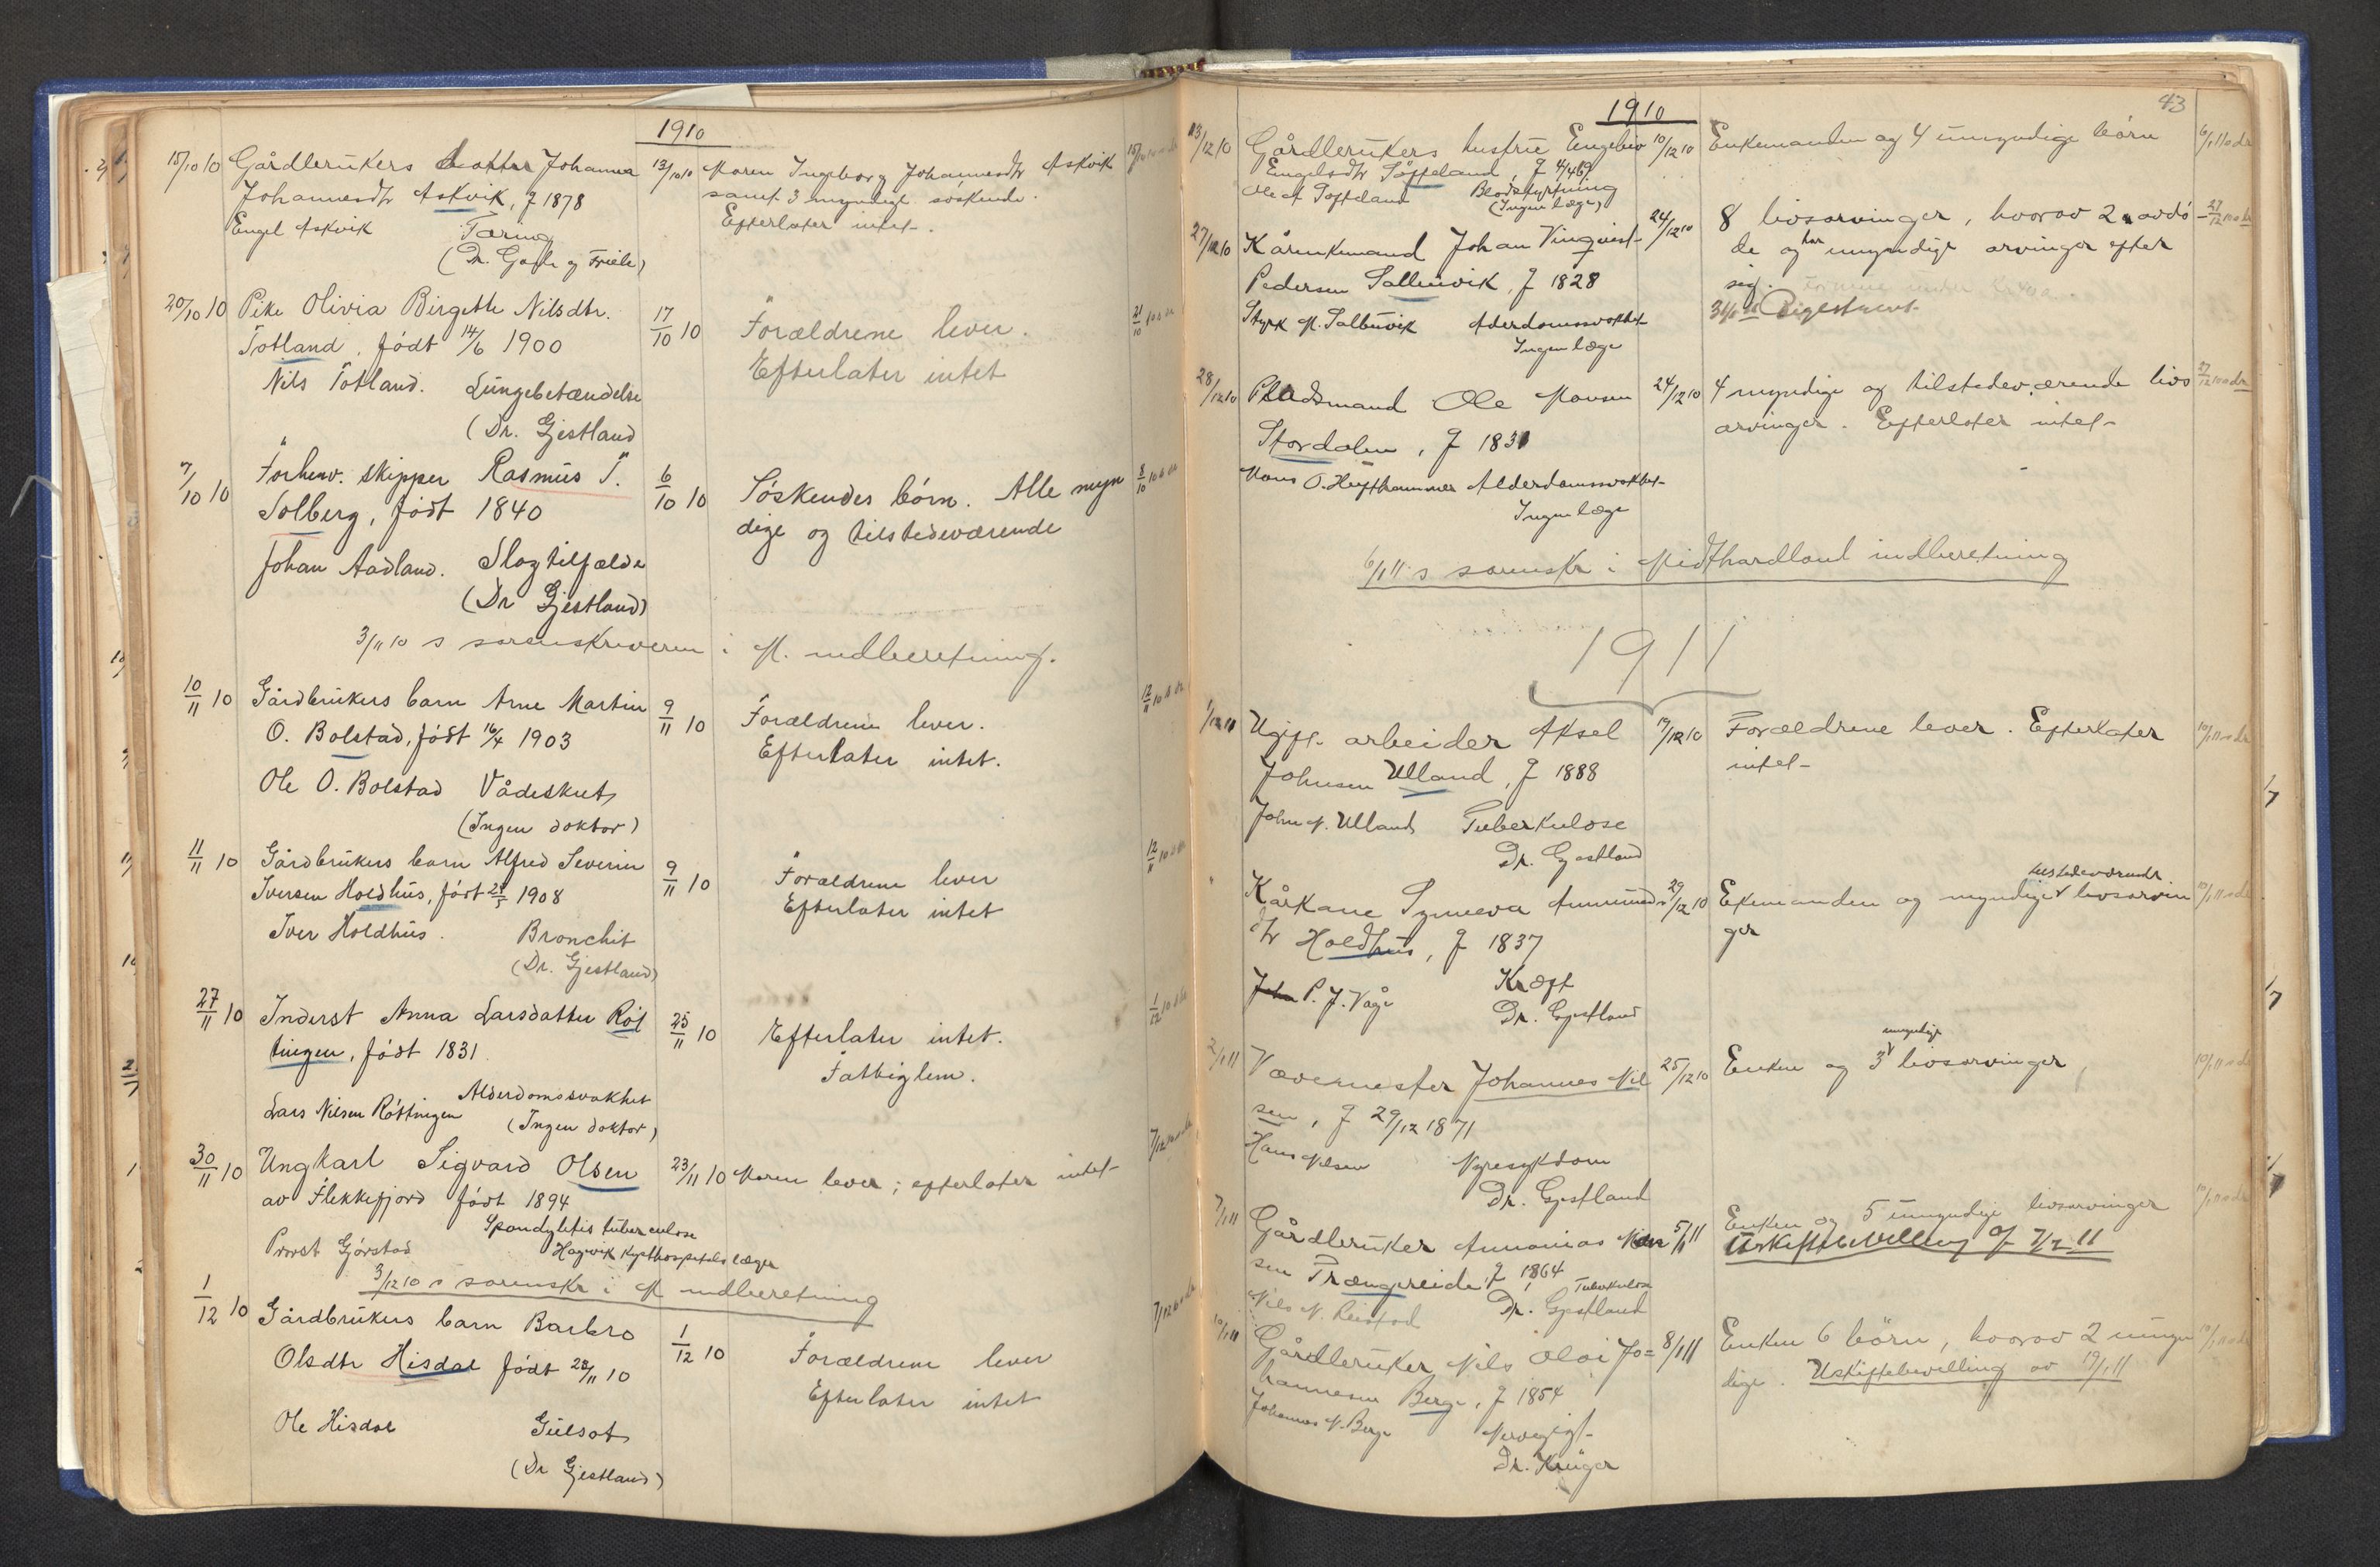 1910
15/10 10 Gårdbrukers datter Johanna 13/10 10 Maren Ingeborg Johannesdtr Askvik
Johannesdtr Askvik, f 1878 samt 3 myndige søskende.
Engel Askvik Tæring Efterlater intet.
(Dr. Gade og Friele)
20/10 10 Pike Olivia Birgitte Nilsdtr. 17/10 10 Forældrene lever. 21/10 10
Totland, født 14/6 1900 Efterlater intet
Nils Totland. Lungebetændelse
(Dr. Gjestland
7/10 10 Forhenv. skipper Rasmus T. 6/10 10 Søskendes børn. Alle myn 8/10 10
Solberg, født 1840 dige og tilstedeværende
Johan Aadland. Slagtilfælde
(Dr Gjestland)
3/11 10 s sorenskriveren i M. indberetning.
10/11 10 Gårdbrukers barn Arne Martin 9/11 10 Forældrene lever. 12/11 10
O. Bolstad, født 16/4 1903 Efterlater intet.
Ole O. Bolstad Vådeskud
(Ingen doktor)
11/11 10 Gårdbrukers barn Alfred Severin 9/11 10 Forældrene lever 12/11 10
Iversen Holdhus, født 1908 Efterlater intet
Iver Holdhus. Bronchit
(Dr. Gjestland)
27/11 10 Inderst Anna Larsdatter Røt 25/11 10 Efterlater intet. 1/12 10
tingen, født 1831 Fattiglem.
Alderdomssvakhet
Lars Nilsen Røttingen (Ingen doktor)
30/11 10 Ungkarl Sigvard Olsen 23/11 10 Moren lever; efterlater intet
av Flekkefjord født 1894
Spondylitis tuberculose
Provst Gjørstad Hagevik Kysthospitals læger
3/12 10 s sorenskr i M indberetning
1/12 10 Gårdbrukers barn Barbro 1/12 10 Forældrene lever
Olsdtr Hisdal født 28/11 10 Efterlater intet
Ole Hisdal Gulsot
(Dr Gjestland)
43
1910
13/12 10 Gårdbrukers hustru Engebor 10/12 10 Enkemanden og 4 umyndige børn
Engelsdtr Søfteland, f 4/4 69
Ole A Søfteland Blodstyrtning
(Ingen læge)
27/12 10 Kårenkemand Johan Vinqvist 24/12 10 8 livsarvinger, hvorav 2 avdø 27/12 10
Pedersen Sallenvik, f 1828 de og har myndige arvinger efter
sig.
Styrk M. Sallenvik Alderdomssvakhet
Ingen læge
28/12 10 Pladsmand Ole Monsen 24/12 10 4 myndige og tilstedeværende livs 27/12 10
Stordalen, f 1831 arvinger. Efterlater intet
Mons O. Hufthammer Alderdomssvakhet
Ingen læge
6/1 11 s sorenskr i Midthardland indberetning
1911
Ugift arbeider Aksel 17/12 10 Forældrene lever. Efterlater
Johnsen Ulland, f 1888 intet
John M. Ulland Tuberkulose
Dr. Gjestland
tilstedeværende
Kårkane Synneva Ammunds 29/12 10 Ekemanden og myndige livsarvin
dtr Holdhus, f 1837 ger
P. J. Vage Kræft
Dr. Gjestland
myndige
2/1 11 Vævermester Johannes Nil 25/12 10 Enken og 3 livsarvinger
sen, f 29/12 1871
Hans Nilsen Nyresykdom
Dr. Gjestland
7/1 11 Gårdbruker Annanias Niel 5/1 11 Enken og 5 umyndige livsarvinger
sen Trængereide, f 1864 Uskiftebevilling af 7/2 11
Tuberkulose
Nils N. Reistad Dr. Gjestland
10/1 11 Gårdbruker Nils Olai Jo= 8/1 11 Enken 6 børn, hvorav 2 umyn
hannesen Berge, f 1854 dige. Uskiftebevilling av 19/1 11
Johannes N. Berge Nervegigt
Dr. Krüger